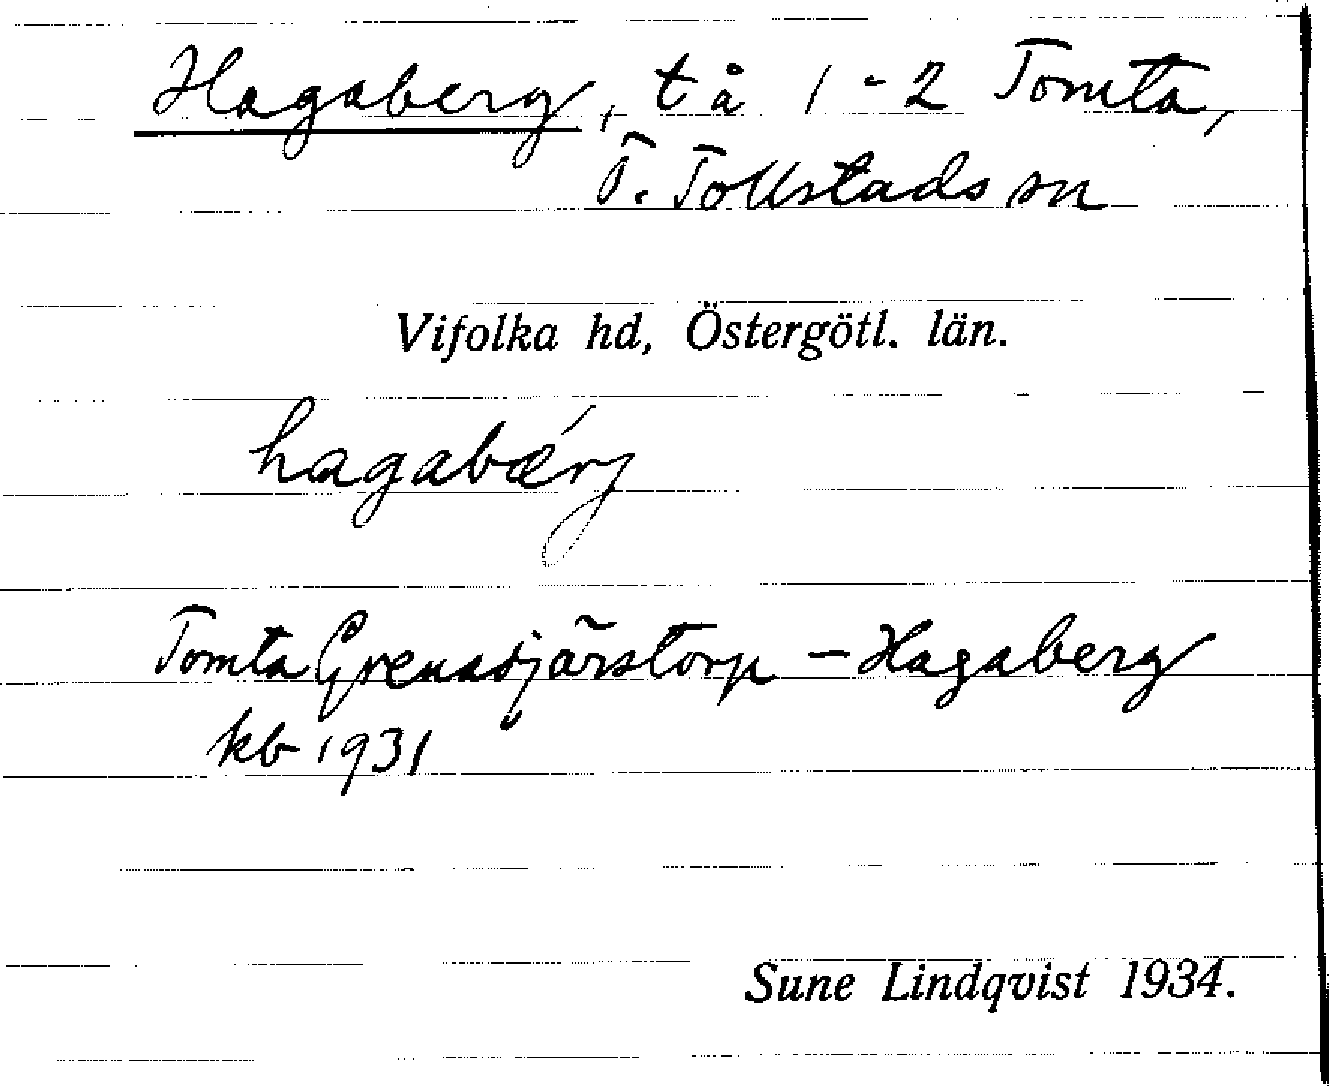 Hagaberg, t å 1-2 Tomta,
V. Tollstads sn
Vifolka hd, Östergötl. län.
hagabǽrj
Tomta Grenadjärstorp - Hagaberg
kb 1931
Sune Lindqvist 1934.